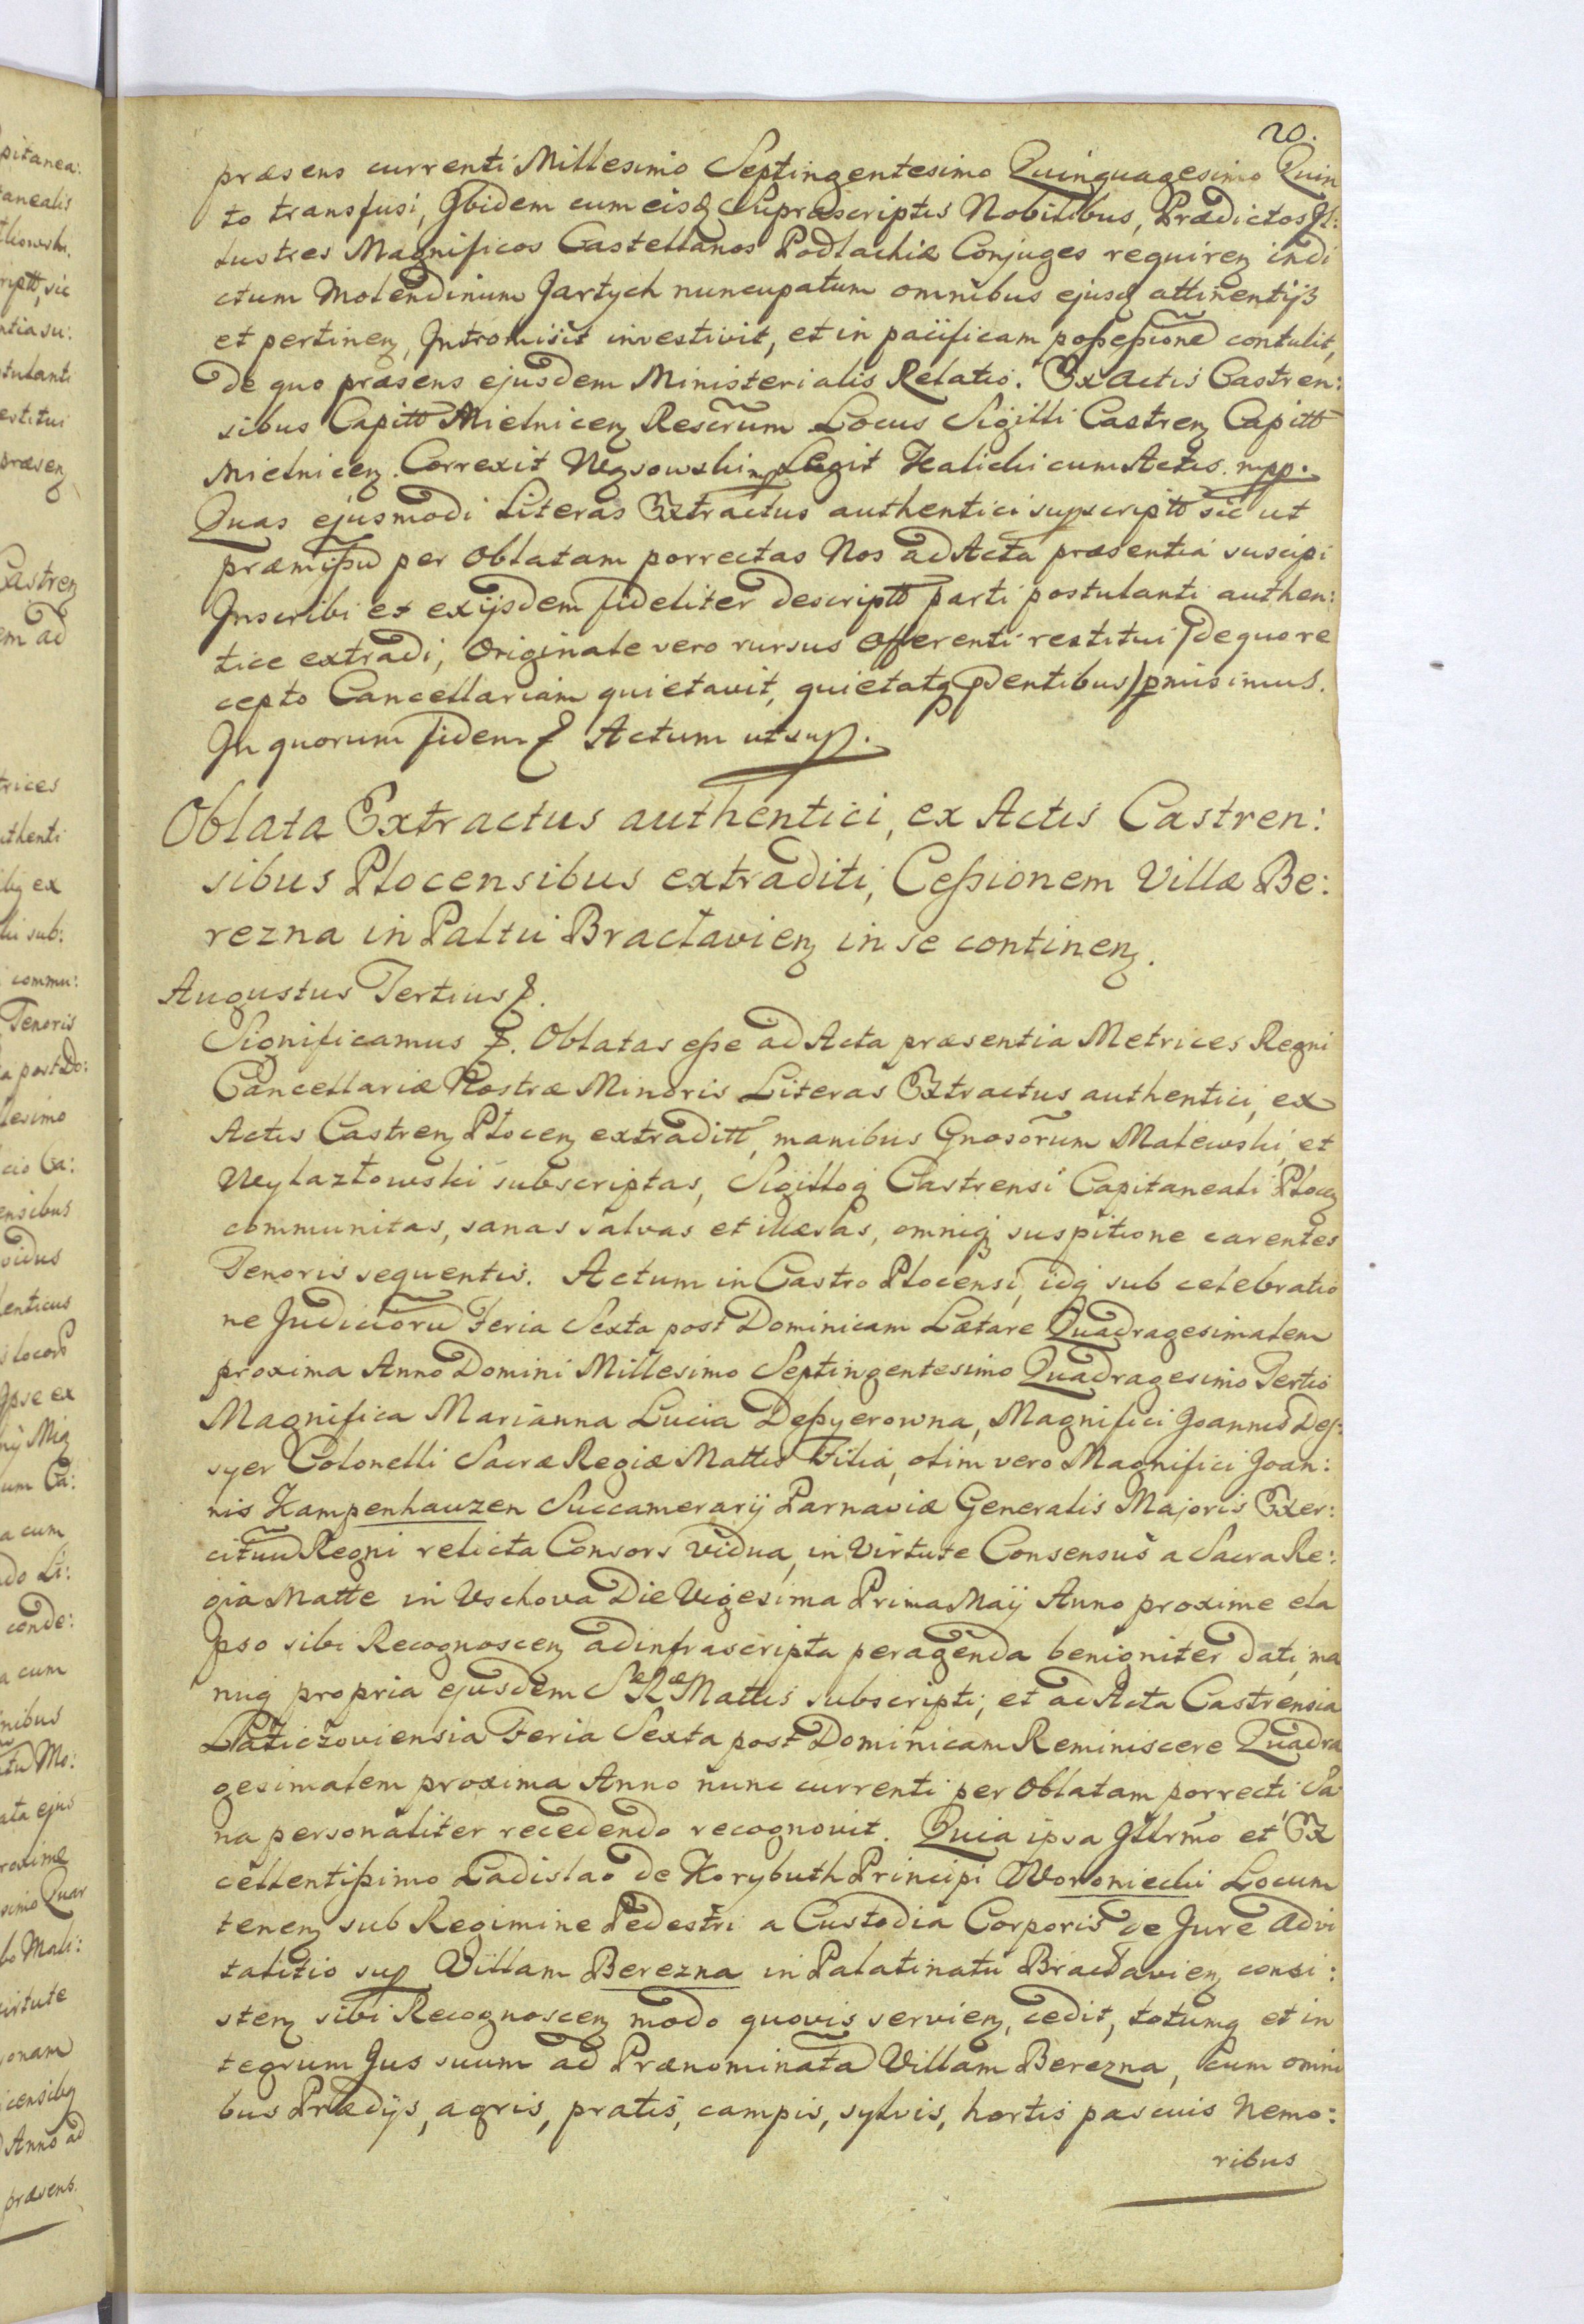 20.
præsens currenti Millesimo Septingentesimo Quinquagesimo Quin
to transfusi, Ibidem cum eisq Supræscriptis Nobilibus, Prædictos Il:
lustres Magnificos Castellanos Podlachiæ Conjuges requireñ indi
ctum Molendinum Jartych nuncupatum omnibus ejusq attinentijs
et pertineñ, Intromisit investivit, et in pacificam poßeßione contulit,
de quo præsens ejusdem Ministerialis Relatio. Ex Actis Castren:
sibus Capitt Mielniceñ Rescrum Locus Sigilli Castreñ Capitt
Mielniceñ. Correxit Legit Halicki cum Actis. mpp.
Quas ejusmodi Literas Extractus authentici supscriptt sic ut
præmißu per Oblatam porrectas Nos ad Acta præsentia suscipi
Inscribi et exijsdem fideliter descriptt parti postulanti authen:
tice extradi, Originale vero rursus Offerenti restitui /de quo re
cepto Cancellariam quietavit, quietatq pdentibus/ pmisimus.
In quorum fidem &. Actum ut sup.
Oblata Extractus authentici, ex Actis Castren:
sibus Plocensibus extraditi, Ceßionem Villæ Be:
rezna in Paltu Braclavieñ in se contineñ.
Augustus Tertius &.
Significamus &. Oblatas eße ad Acta præsentia Metrices Regni
Cancellariæ Nostræ Minoris Literas Extractus authentici, ex
Actis Castreñ Ploceñ extraditt, manibus Gnosorum Malewski, et
Wylazłowski subscriptas, Sigilloq Castrensi Capitaneali Ploceñ
communitas, sanas salvas et illæsas, omniq suspitione carentes
Tenoris sequentis. Actum in Castro Plocensi, idq sub celebratio
ne Judicioru Feria Sexta post Dominicam Lætare Quadragesimalem
proxima Anno Domini Millesimo Septingentesimo Quadragesimo Tertio
Magnifica Marianna Lucia Deßyerowna, Magnifici Joannis Deß:
syer Colonelli Sacræ Regiæ Mattis Filia, olim vero Magnifici Joan:
nis Kampenhauzen Succamerarij Parnaviæ Generalis Majoris Exer:
cituu Regni relicta Consors Vidua, in Virtute Consensus a Sacra Re:
gia Matte in Vschova Die Vigesima Prima Maij Anno proxime ela
pso sibi Recognosceñ ad infrascripta peragenda benigniter dati, ma
nuq propria ejusdem SæRæ Mattis subscripti, et ad Acta Castrensia
Laticzoviensia Feria Sexta post Dominicam Reminiscere Quadra
gesimalem proxima Anno nunc currenti per Oblatam porrecti Sa
na personaliter recedendo recognovit. Quia ipsa Illrmo et Ex
cellentißimo Ladislao de Korybuth Principi Woroniecki Locum
teneñ sub Regimine Pedestri a Custodia Corporis de Jure Advi
talitio sup Villam Berezna in Palatinatu Braclavieñ consi:
steñ sibi Recognosceñ modo quovis servieñ, cedit, totumq et in
tegrum Jus suum ad Prænominata Villam Berezna, cum omni
bus Prædijs, agris, pratis, campis, sylvis, hortis pascuis Nemo:
ribus